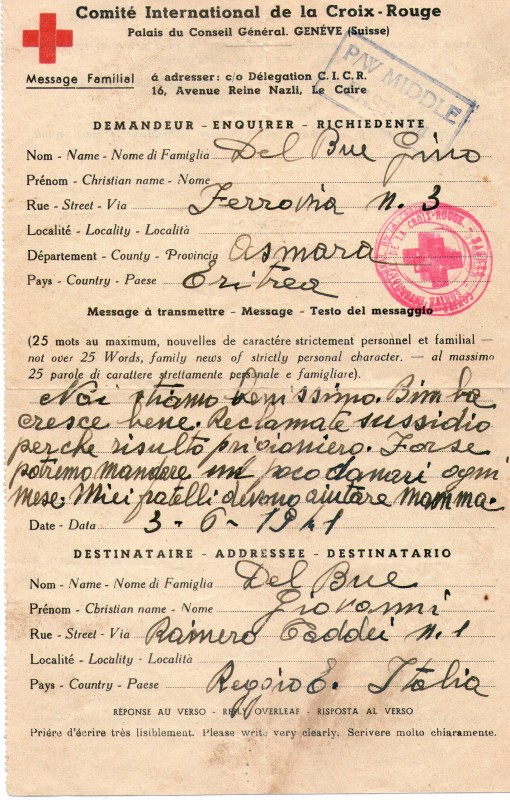 Comité International de la Croix-Rouge
Palais du Conseil Général. GENÉVE (Suisse)
Message Familial
á adresser: c/o Délegation C.I.C.R.
16, Avenue Reine Nazli, Le Caire
PAV MIDDLE
DEMANDEUR - ENQUIRER - RICHIEDENTE
Nom - Name - Nome di Famiglia Del Bue Gino
Prénom - Christian name - Nome
Rue - Street - Via Ferrovia n. 3
Localité - Locality - Località
Départment - County - Provincia Asmara
Pays - Country - Paese Eritrea
DE LA CROIX-ROUGE
Message à transmettre - Message - Testo del messaggio
(25 mots au maximum, nouvelles de caractére strictement personnel et familial —
not over 25 Words, family news of strictly personal character. — al massimo
25 parole di carattere strettamente personale e famigliare).
Noi stiamo benissimo. Bimba
cresce bene. Reclamate sussidio
perche risulto prigioniero. Forse
potremo mandare un poco danari ogni
mese. Miei fratelli devono aiutare mamma.
Date - Data 3-6-1941
DESTINATAIRE - ADDRESSEE - DESTINATARIO
Nom - Name - Nome di Famiglia Del Bue
Prénom - Christian name - Nome Giovanni
Rue - Street - Via Rainero Taddei n. 1
Localité - Locality - Località
Pays - Country - Paese Reggio E. Italia
RÉPONSE AU VERSO - REPLY OVERLEAF - RISPOSTA AL VERSO
Priére d'écrire trés lisiblement. Please write very clearly. Scrivere molto chiaramente.